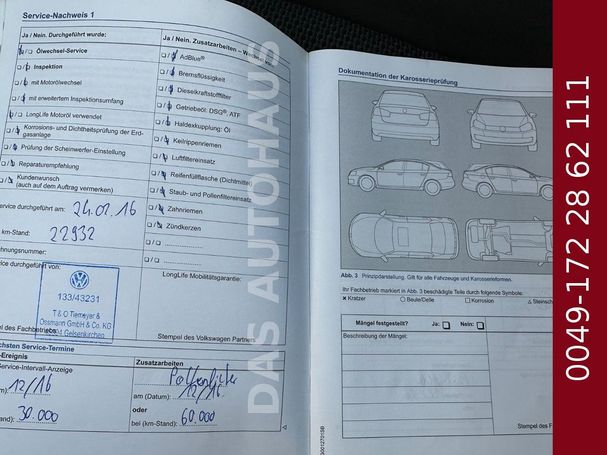 Service-Nachweis 1
Ja / Nein. Durchgeführt wurde:
Ölwechsel-Service
Inspektion
mit Motorölwechsel
mit erweitertem Inspektionsumfang
LongLife Motoröl verwendet
Korrosions- und Dichtheitsprüfung der Erd-
gasanlage
Prüfung der Scheinwerfer-Einstellung
Reparaturempfehlung
Kundenwunsch
(auch auf dem Auftrag vermerken)
ervice durchgeführt am: 24.02.16
km-Stand: 22932
chnungsnummer:
vice durchgeführt von:
133/43231
T & O Tiemeyer &
Ossmann GmbH & Co. KG
Gelsenkirchen
pel des Fachbetriebs
chsten Service-Termine
-Ereignis
Service-Intervall-Anzeige
12/16
30.000
Ja / Nein. Zusatzarbeiten – Wechsel von:
AdBlue®
Bremsflüssigkeit
Dieselkraftstofffilter
Getriebeöl: DSG®, ATF
Haldexkupplung: Öl
Keilrippenriemen
Luftfiltereinsatz
Reifenfüllflasche (Dichtmittel)
Staub- und Pollenfiltereinsatz
Zahnriemen
Zündkerzen
LongLife Mobilitätsgarantie:
Stempel des Volkswagen Partners
Zusatzarbeiten
Pollenfilter
am (Datum): 12/16
oder
bei (km-Stand): 60.000
DAS AUTOHAUS
Dokumentation der Karosserieprüfung
Abb. 3 Prinzipdarstellung. Gilt für alle Fahrzeuge und Karosserieformen.
Ihr Fachbetrieb markiert in Abb. 3 beschädigte Teile durch folgende Symbole:
× Kratzer ○ Beule/Delle □ Korrosion △ Steinsch
Mängel festgestellt? Ja: Nein:
Beschreibung der Mängel:
Stempel des F
0049-172 28 62 111